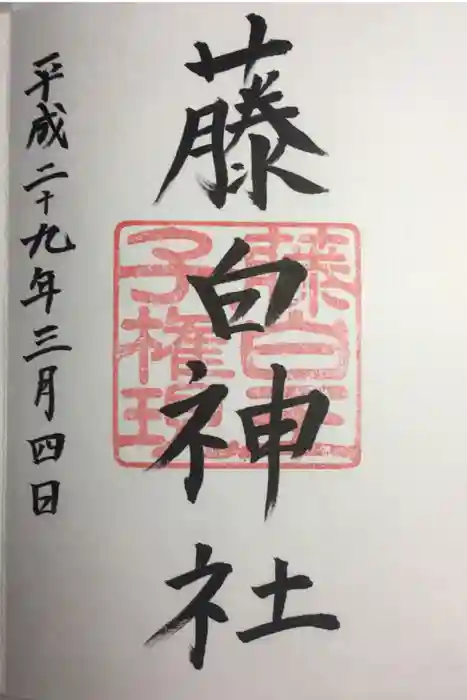 藤白神社
藤白王
子権現
平成二十九年三月四日